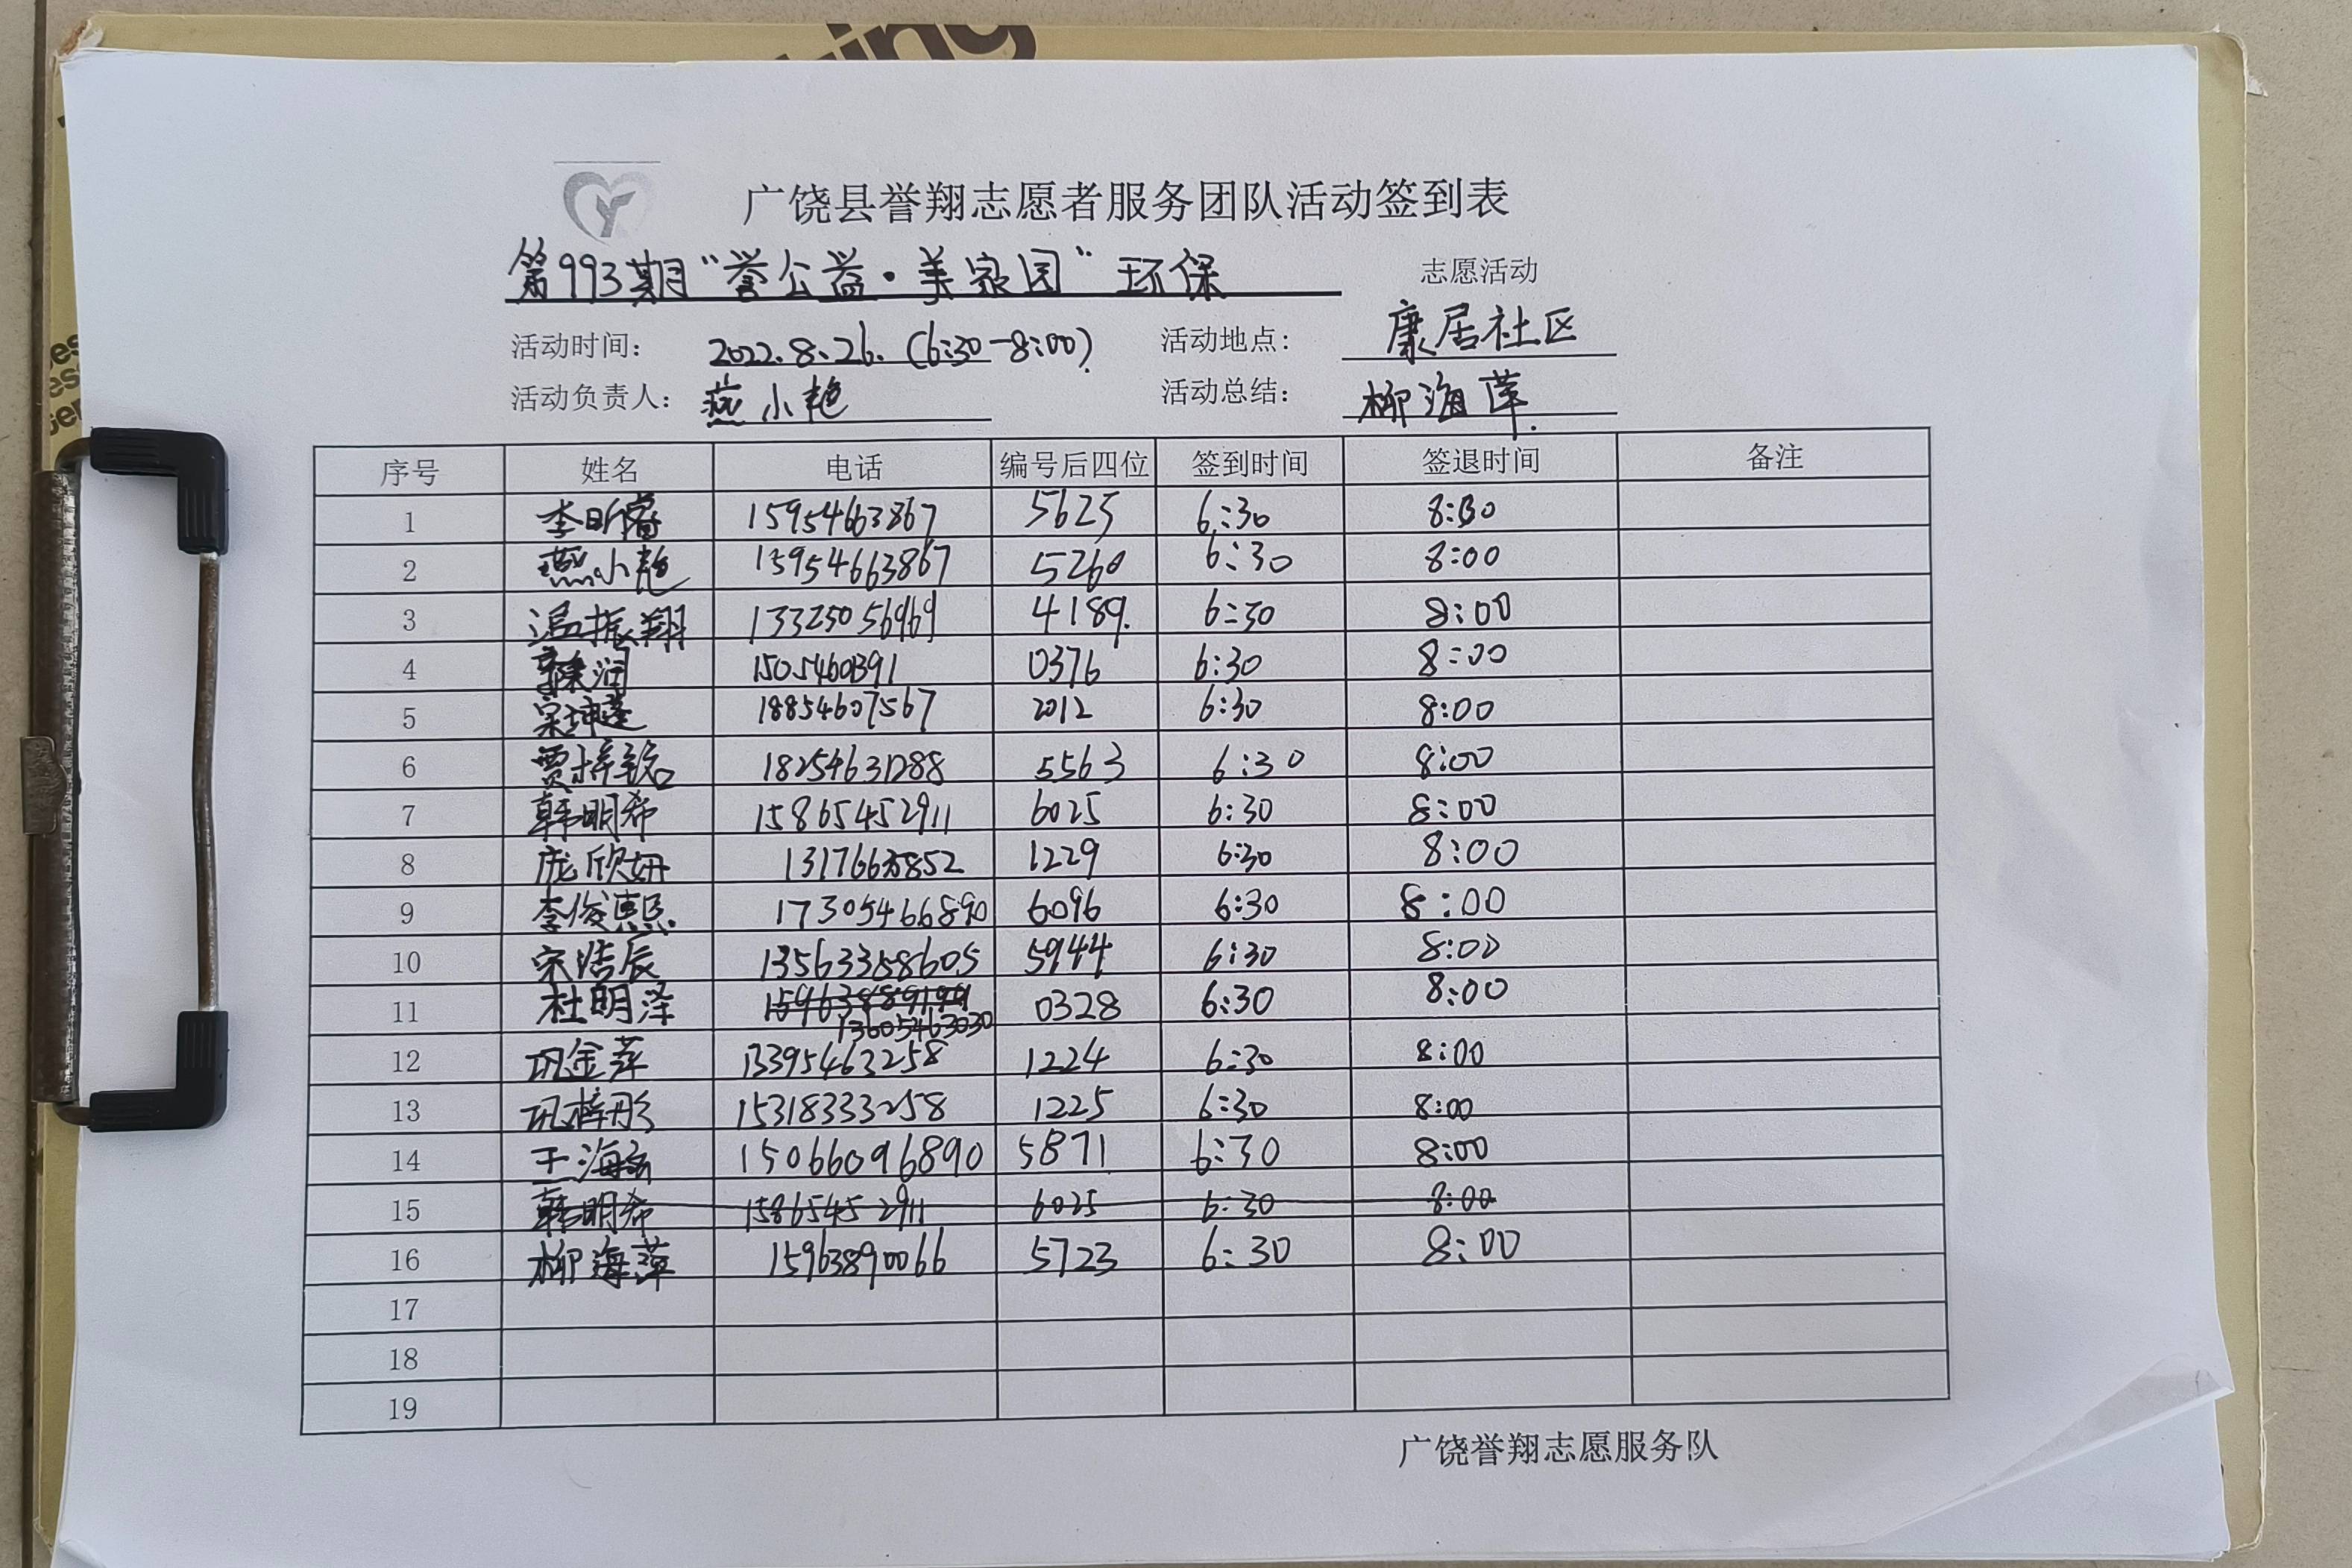 king
广饶县誉翔志愿者服务团队活动签到表
第993期“誉公益·美家园”环保 志愿活动
活动时间： 2022.8.26.（6:30-8:00） 活动地点： 康居社区
活动负责人： 燕小艳 活动总结： 柳海萍
序号 姓名 电话 编号后四位 签到时间 签退时间 备注
1 李昕 15954663867 5625 6:30 8:30
2 燕小艳 15954663867 5260 6:30 8:00
3 温振翔 13325056969 4189. 6:30 8:00
4 润 0376 6:30 8:00
5 宋坤蓬 18854607567 2012 6:30 8:00
6 贾梓铭 18254631288 5563 6:30 8:00
7 韩明希 15865452911 6025 6:30 8:00
8 庞欣妍 1229 6:30 8:00
9 李俊熙 17305466890 6096 6:30 8:00
10 宋浩辰 13563358605 5944 6:30 8:00
11 杜明泽 13605463030 0328 6:30 8:00
12 巩金萍 13395463258 1224 6:30 8:00
13 巩梓彤 15318333258 1225 6:30 8:00
14 王海 15066096890 5871 6:30 8:00
15 韩明希 15865452911 6025 6:30 8:00
16 柳海萍 15963890066 5723 6:30 8:00
17
18
19
广饶誉翔志愿服务队